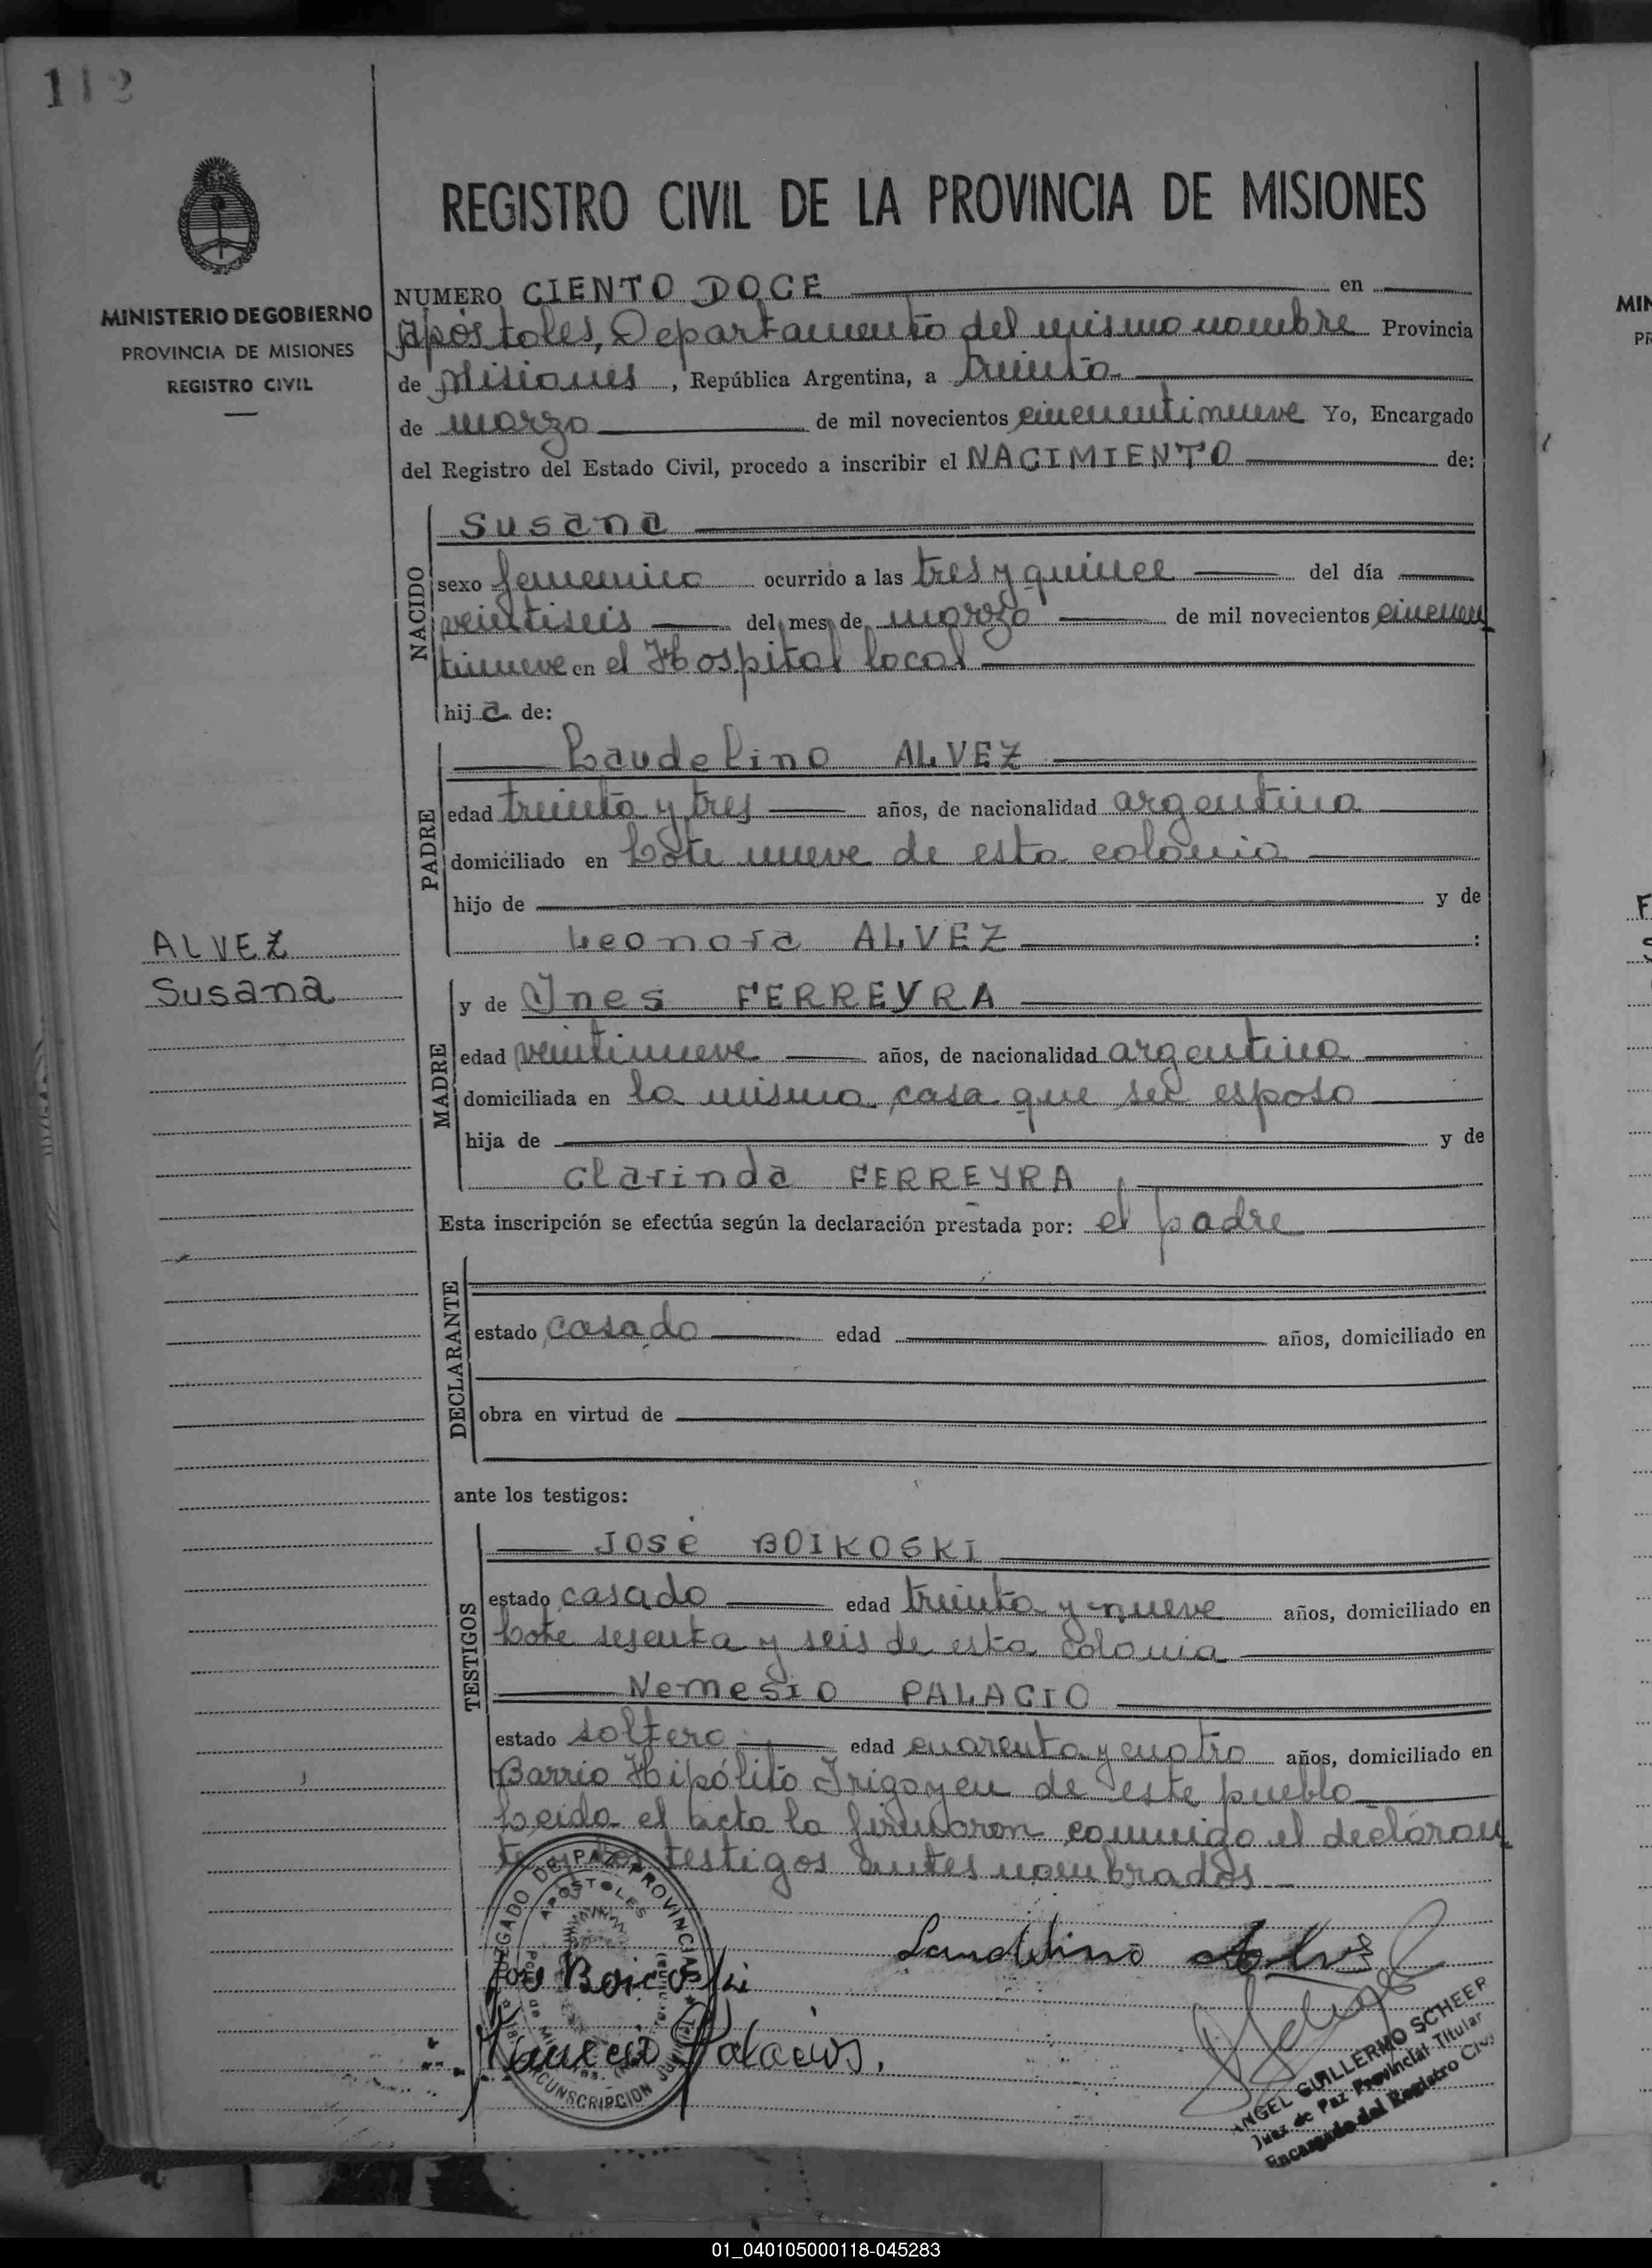 112
MINISTERIO DE GOBIERNO
PROVINCIA DE MISIONES
REGISTRO CIVIL
REGISTRO CIVIL DE LA PROVINCIA DE MISIONES
NUMERO CIENTO DOCE en
Apóstoles, Departamento del mismo nombre Provincia
de Misiones, República Argentina, a treinta
de marzo de mil novecientos cincuentinueve Yo, Encargado
del Registro del Estado Civil, procedo a inscribir el NACIMIENTO de:
NACIDO
Susana
sexo femenino ocurrido a las tres y quince del día
veintiseis del mes de marzo de mil novecientos cincuen
tinueve en el Hospital local
hija de:
PADRE
Laudelino ALVEZ
edad treinta y tres años, de nacionalidad argentina
domiciliado en Lote nueve de esta colonia
hijo de y de
Leonora ALVEZ :
ALVEZ
Susana
MADRE
y de Ynes FERREYRA
edad veintinueve años, de nacionalidad argentina
domiciliada en la misma casa que su esposo
hija de y de
Clarinda FERREYRA
Esta inscripción se efectúa según la declaración prestada por: el padre
DECLARANTE
estado casado edad años, domiciliado en
obra en virtud de
ante los testigos:
TESTIGOS
José BOIKOSKI
estado casado edad treinta y nueve años, domiciliado en
Lote sesenta y seis de esta colonia
Nemesio PALACIO
estado soltero edad cuarenta y cuatro años, domiciliado en
Barrio Hipólito Irigoyen de este pueblo
Leida el acta la firmaron conmigo el declaran
te y los testigos antes nombrados
JUZGADO DE PAZ PROVINCIAL
APOSTOLES
CIRCUNSCRIPCION
Laudelino Alvez
José Boicoski
Nemesio Palacios.
ANGEL GUILLERMO SCHEER
Juez de Paz Provincial Titular
Encargado del Registro Civil
01_040105000118-045283